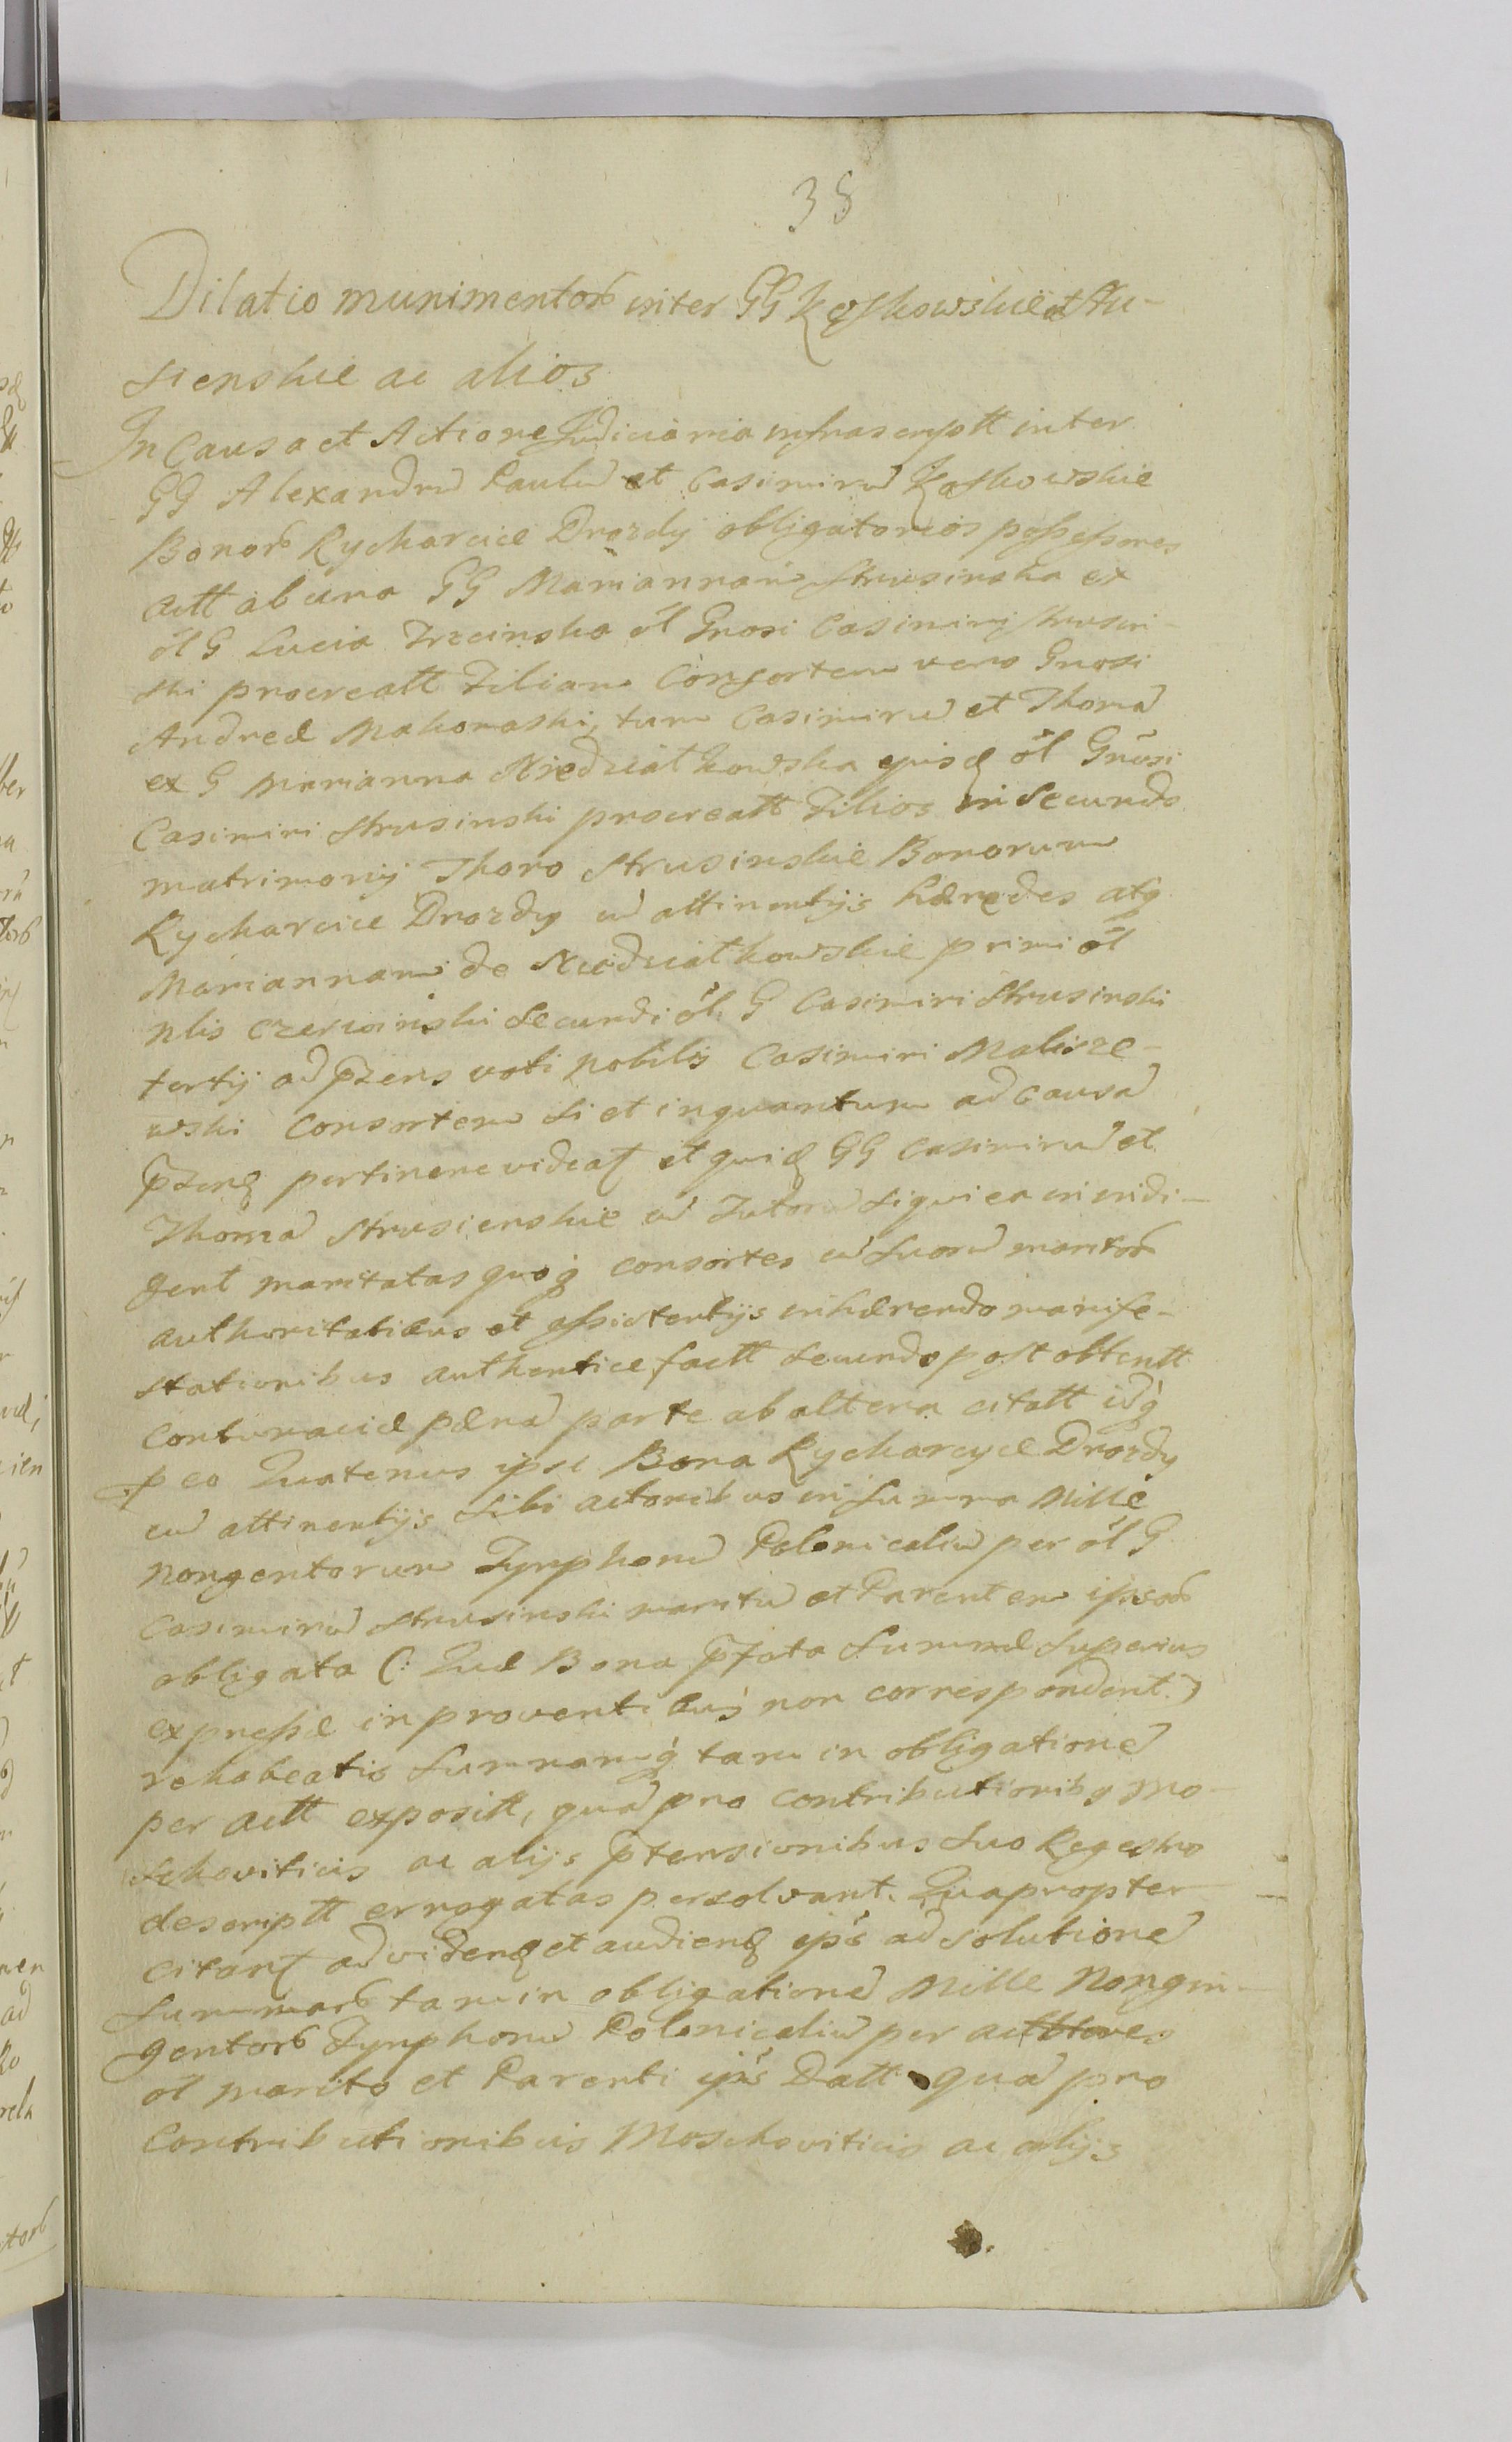 38
Dilatio munimentorb inter GG Kąskowskie et Stru-
sienskie ac alios
In Causa et Actione Judiciaria infrascriptt inter
GG Alexandrũ Paulũ et Casimirũ Kąskowskie
Bonorb Rycharcice Drozdy obligatorios possessores
actt ab una GG Mariannam Strusinska ex
õl G Lucia Trzcinska õl Gnosi Casimirj Strusin-
ski procreatt Filiam Consortem vero Gnosi
Andreæ Makomaski, tum Casimirũ et Thomã
ex G Marianna Niedziałkowska ejusdẽ õl Gnõsi
Casimiri Strusinski procreatt Filios in Secundo
matrimonij Thoro Strusinskie Bonorum
Rycharcice Drozdy cũ attinentijs hæredes atq̃
Mariannam de Niedziałkowskie primi õl
nlis Czerwinski secundi õl G Casimiri Strusinski
tertij ad p̃zens voti nobilis Casimiri Malisze-
wski Consortem si et inquantum ad Causã
p̃zenẽ pertinere videat et quidẽ GG Casimirũ et
Thomã Strusienskie cũ Tutorũ siqui ea in indi-
gent maritatas quoq̃ consortes cũ suorũ maritorb
authoritatibus et assistentijs inhærendo manife-
stationibus authentice factt secundo post obtentt
contumaciæ pænã parte ab altera citatt idq̃
p eo Quatenus ipsi Bona Rycharcyce Drozdy
cũ attinentijs sibi actoribus in summa Mille
nongentorum Tynphorũ Polonicaliũ per õl G
Casimirũ Strusinski maritũ et Parentem ipsorb
obligata (: Quæ Bona p̃fata summæ superius
expressæ in proventibus non correspondent :)
rehabeatis summamq̃ tam in obligationẽ
per actt expositt, quã pro contributionibq mo-
schoviticis ac alijs p̃tensionibus suo Regestro
descriptt errogatas persolvant. Quapropter
citant ad videnẽ et audienẽ ip̃s ad solutionẽ
summarb tam in obligationẽ Mille Nongin-
gentorb Tynphorũ Polonicaliũ per actores
õl marito et Parenti ip̃s Datt quã pro
Contributionibus Moschoviticis ac alijs